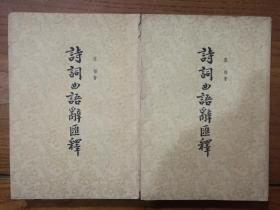 張相著
詩詞曲語辭匯釋
張相著
詩詞曲語辭匯釋